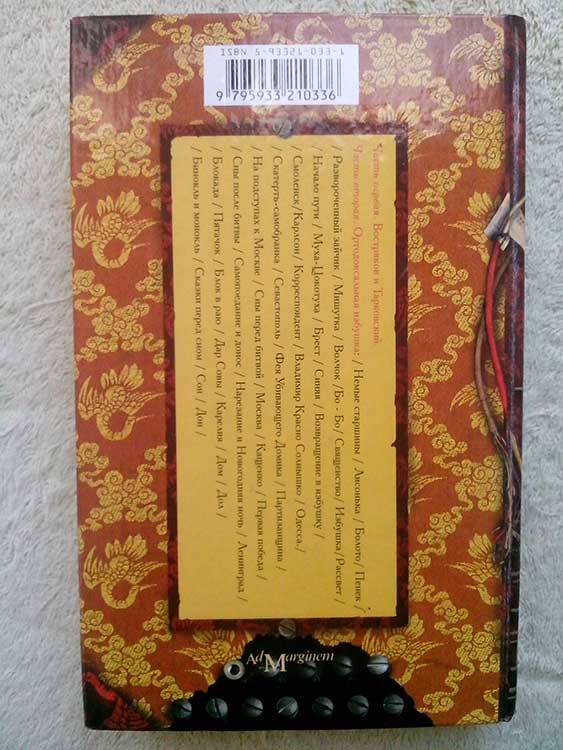 ISBN 5-93321-033-1
9 795933 210336
Часть первая. Востряков и Тарковский.
Часть вторая. Ортодоксальная избушка: / Немые старшины / Лисонька / Болото/ Пенек /
Развороченный зайчик / Мишутка / Волчок /Бо - Бо/ Священство/ Избушка/Рассвет /
/ Начало пути / Муха-Цокотуха / Брест / Синяя / Возвращение в избушку /
/Смоленск/Карлсон/ Корреспондент / Владимир Красно Солнышко / Одесса./
Скатерть-самобранка / Севастополь / Фея Убивающего Домика / Партизанщина /
/ На подступах к Москве / Сны перед битвой / Москва / Кащенко / Первая победа /
Сны после битвы / Самопоедание и донос / Нарезание в Новогодняя ночь / Ленинград /
/ Блокада / Пятачок / Блок в раю / Дар Совы / Карелия / Дом / Дол /
Бинокль и монокль / Сказки перед сном / Сон / Дон /
Ad Marginem